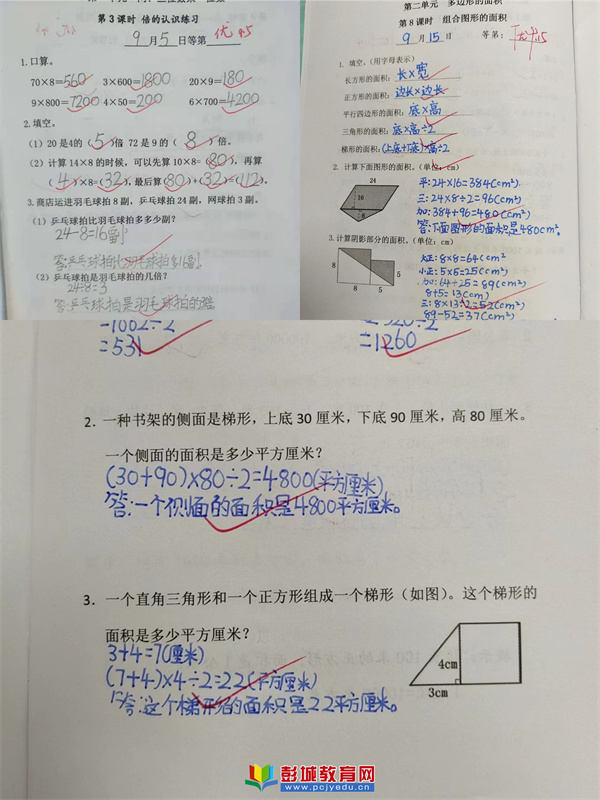 第3课时 倍的认识练习
9月5日等第 优
1.口算。
70×8=560 3×600=1800 20×9=180
9×800=7200 4×50=200 6×700=4200
2.填空。
(1) 20是4的(5)倍 72是9的(8)倍。
(2) 计算14×8的时候,可以先算10×8=(80),再算
(4)×8=(32),最后算(80)+(32)=(112)。
3.商店运进羽毛球拍8副、乒乓球拍24副、网球拍3副。
(1) 乒乓球拍比羽毛球拍多多少副?
24-8=16副
答:乒乓球拍比羽毛球拍多16副
(2) 乒乓球拍是羽毛球拍的几倍?
24÷8=3
答:乒乓球拍是羽毛球拍的
第二单元 多边形的面积
第8课时 组合图形的面积
9月15日 等第:
1. 填空。(用字母表示)
长方形的面积:长×宽
正方形的面积:边长×边长
平行四边形的面积:底×高
三角形的面积:底×高÷2
梯形的面积:(上底+下底)×高÷2
2. 计算下面图形的面积。(单位:cm)
24
16
8
平:24×16=384(cm²)
三:24×8÷2=96(cm²)
加:384+96=480(cm²)
答:下面图形的面积是480cm²。
3.计算阴影部分的面积。(单位:cm)
8
5
8 5
大正:8×8=64(cm²
小正:5×5=25(cm²)
加:64+25=89(cm²)
8+5=13(cm)
三:8×13÷2=52(cm²)
89-52=37(cm²)
=1062÷2
=531
=1260
2. 一种书架的侧面是梯形,上底30厘米,下底90厘米,高80厘米。
一个侧面的面积是多少平方厘米?
(30+90)×80÷2=4800(平方厘米)
答:一个侧面的面积是4800平方厘米。
3. 一个直角三角形和一个正方形组成一个梯形(如图)。这个梯形的
面积是多少平方厘米?
3+4=7(厘米)
(7+4)×4÷2=22(平方厘米)
答:这个梯形的面积是22平方厘米。
4cm
3cm
彭城教育网
www.pcjyedu.cn